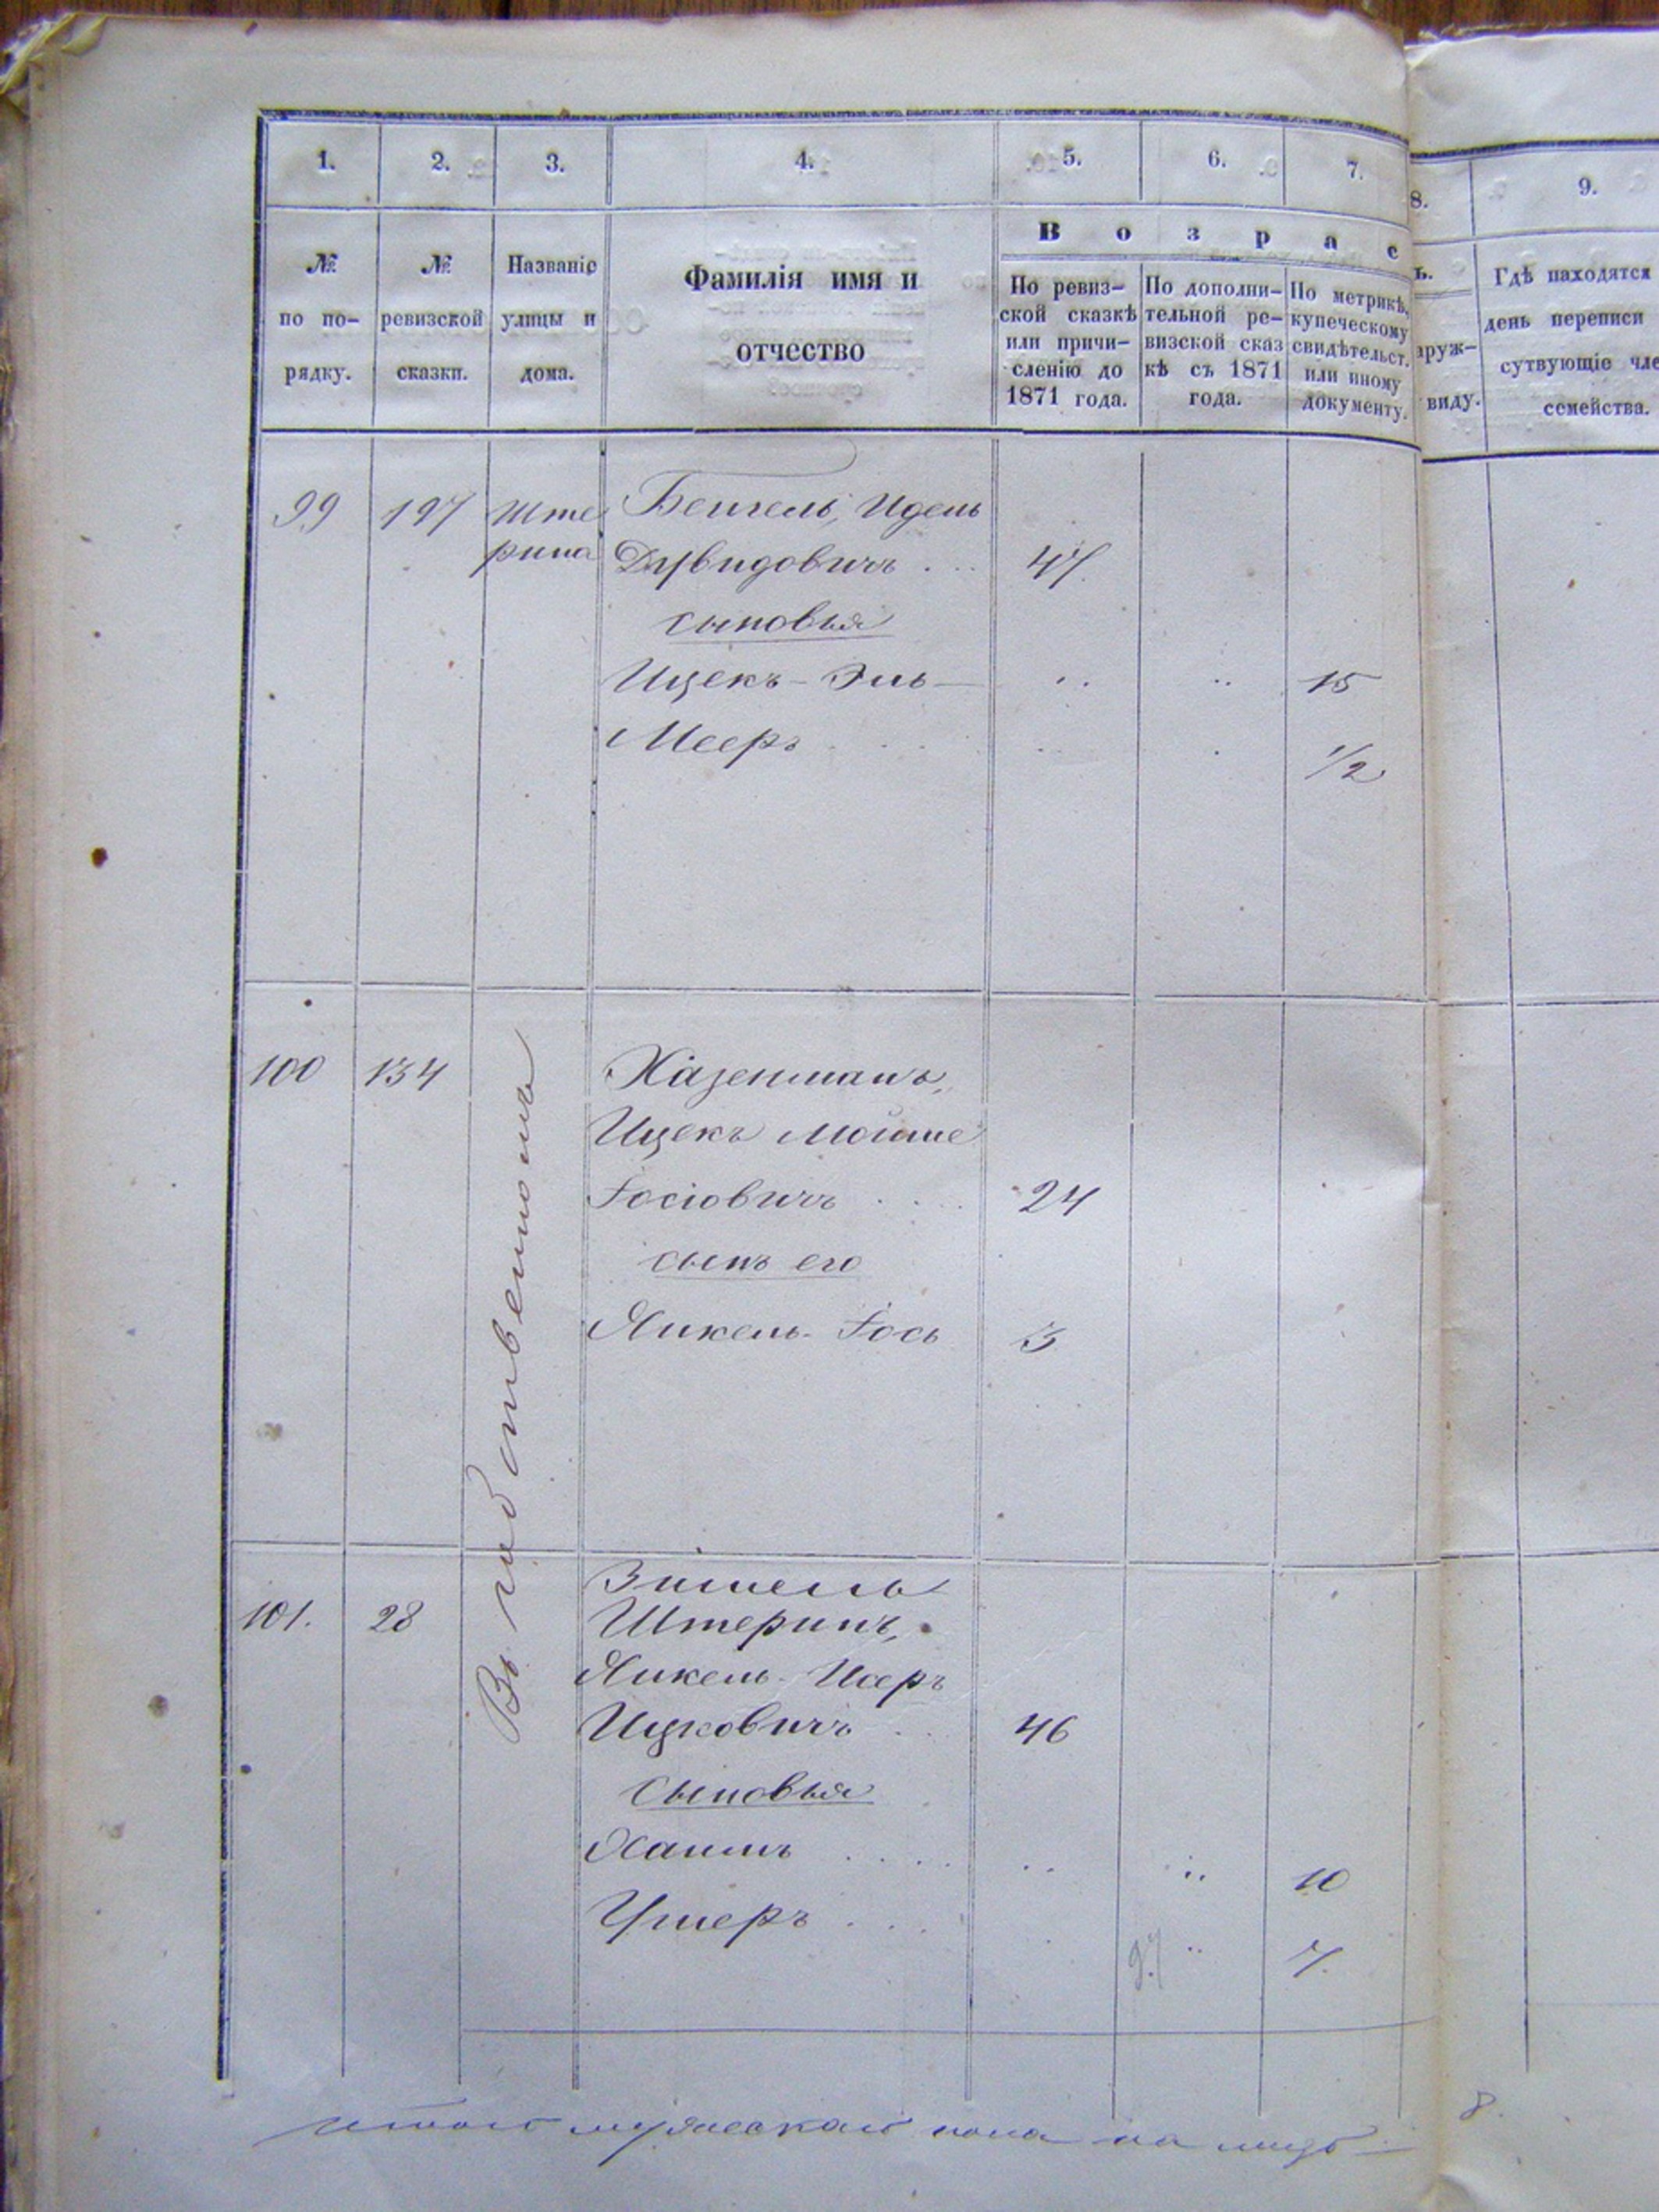 1. 2. 3. 4. 5. 6. 7.
8. 9.
В о з р а с
№
по по-
рядку.
№
ревизской
сказки.
Названіе
улицы и
дома.
Фамилія имя и
отчество
По ревиз-
ской сказкѣ
или причи-
сленію до
1871 года.
По дополни-
тельной ре-
визской сказ
кѣ съ 1871
года.
По метрикѣ,
купеческому
свидѣтельст.
или иному
документу.
ь.
аруж-
виду.
Гдѣ находятся
день переписи
сутвующіе чле
семейства.
99 197 Ште Бенгель, Идель
рина Дувидовичъ . . . 47.
сыновья
Ицекъ - Эль — 15
Мееръ 1/2
100 134 Хазенманъ,
Ицекъ Мойше
Іосіовичъ 24
сынъ его
Янкель - Іось 3
Въ
Зишель
101. 28 Штеринъ,
Янкель - Исеръ
Ицковичъ 46
Сыновья
Хаимъ 10
Ушеръ 7.
Итого мужескаго пола на лицо — 8.